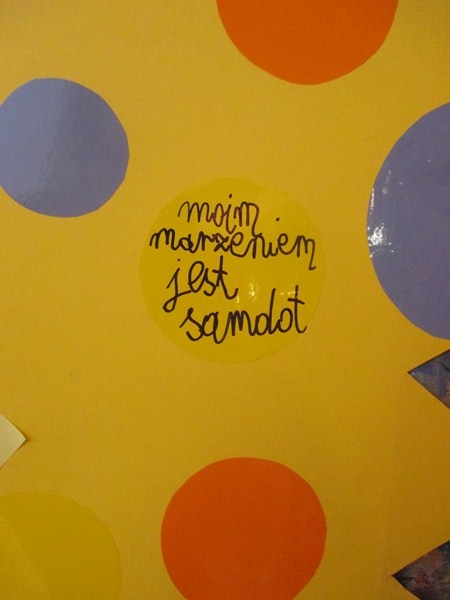 moim
marzeniem
jest
samdot